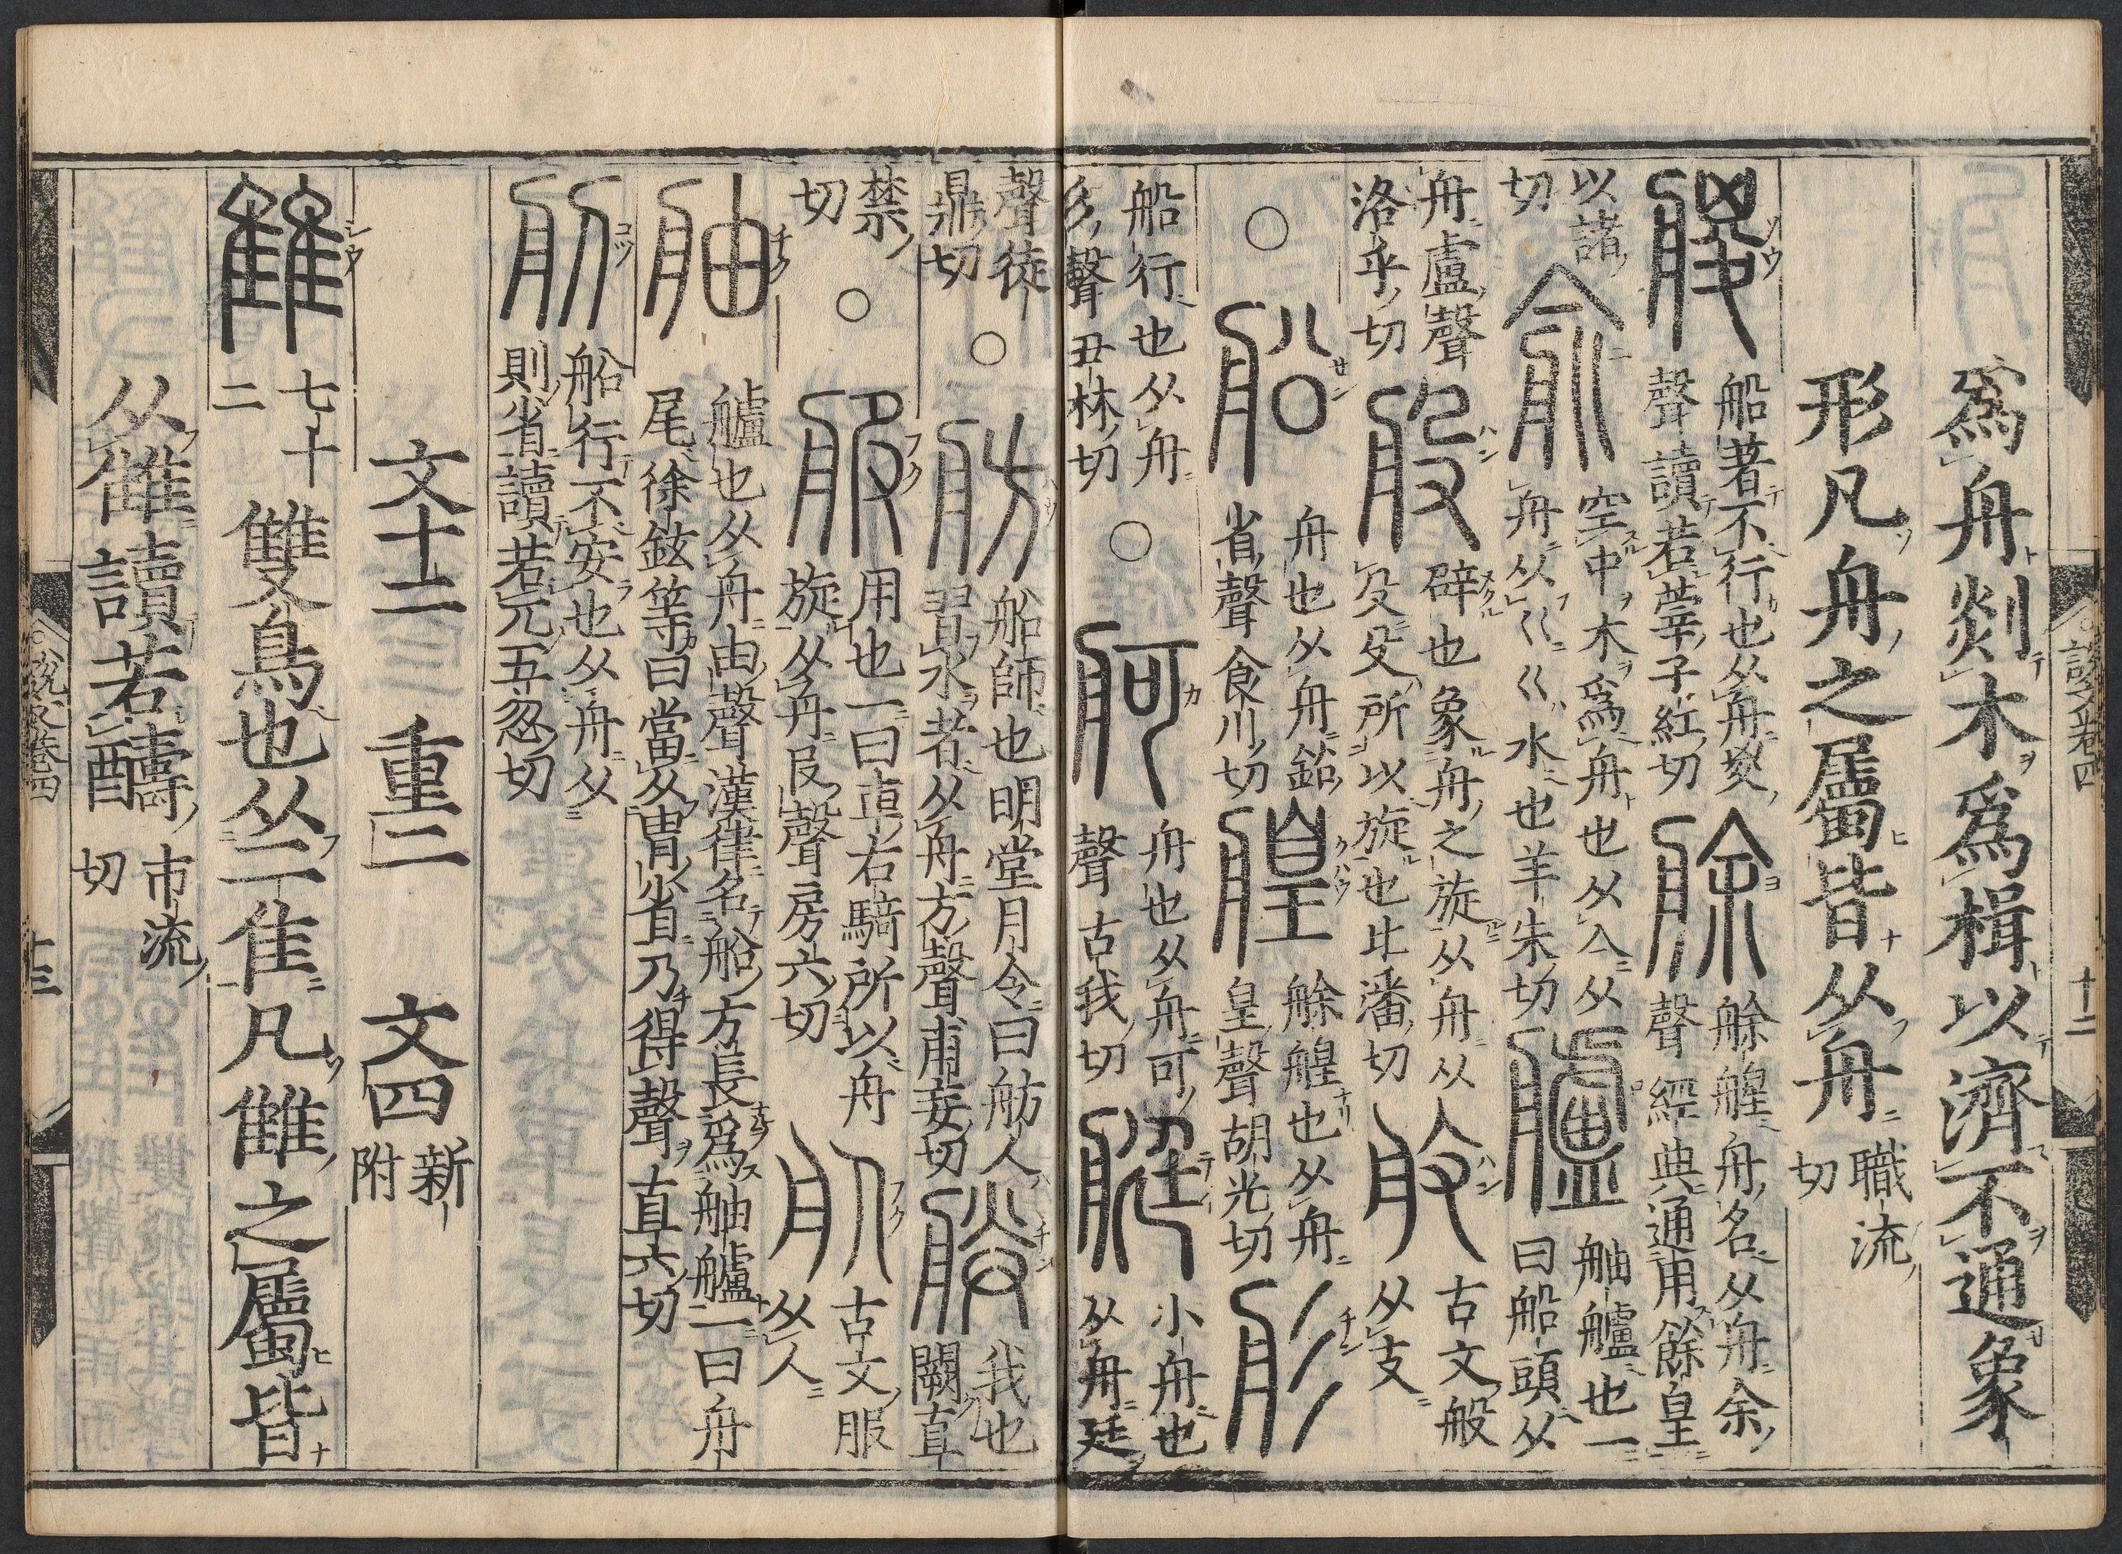 說文卷四 十二
爲舟剡木爲楫以濟不通象
形凡舟之屬皆从舟職流切
艐船著不行也从舟㚇聲讀若䔖子紅切艅艅艎舟名从舟余聲經典通用餘皇
以諸切俞空中木爲舟也从亼从舟从巜巜水也羊朱切艫舳艫也一曰船頭从
舟盧聲洛乎切般辟也象舟之旋从舟从殳殳所以旋也比潘切古文般从支
○船舟也从舟鉛省聲食川切艎艅艎也从舟皇聲胡光切彤
船行也从舟彡聲丑林切○舸舟也从舟可聲古我切艇小舟也从舟廷
聲徒鼎切○舫船師也明堂月令曰舫人習水者从舟方聲甫妄切朕我也闕直
禁切○服用也一曰車右騎所以舟旋从舟𠬝聲房六切古文服从人
舳艫也从舟由聲漢律名船方長爲舳艫一曰舟尾徐鉉等曰當从冑省乃得聲直六切
船行不安也从舟从則省讀若兀五忽切
文十二 重二 文四新附
雔七十二雙鳥也从二隹凡雔之屬皆
从雔讀若醻市流切
說文卷四 十三